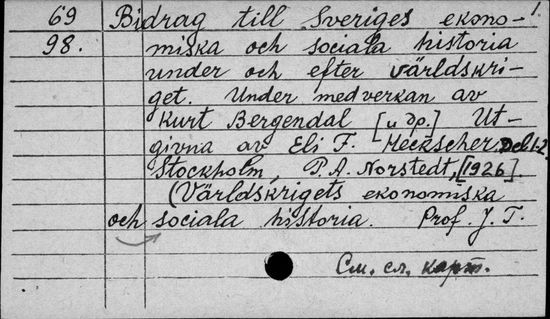 69 Bidrag till Sveriges ekono- 1.
98. miska och sociala historia
under och efter världskri-
get. Under medverkan av
Kurt Bergendal [и др.] Ut-
givna av Eli F. Heckscher. Del 1-2
Stockholm, P. A. Norstedt, [1926].
(Världskrigets ekonomiska
och sociala historia. Prof. J. T.
См. сл. карт.